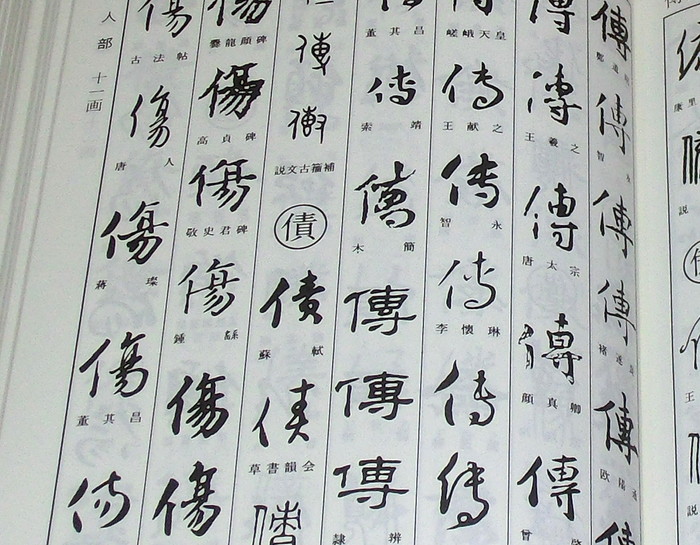 傳
傳
智永
傳
傳
褚遂良
傳
欧陽通
傳
傳
王羲之
傳
唐太宗
傳
顔真卿
傳
嵯峨天皇
傳
王献之
傳
智永
傳
李懐琳
傳
傳
董其昌
傳
索靖
傳
木簡
傳
傳
傳
隷辨
説文古籀補
債
債
蘇軾
債
草書韻会
債
爨龍顔碑
傷
高貞碑
傷
敬史君碑
傷
鍾繇
傷
傷
傷
古法帖
傷
唐人
傷
蒋璨
傷
董其昌
傷
人部 十一画